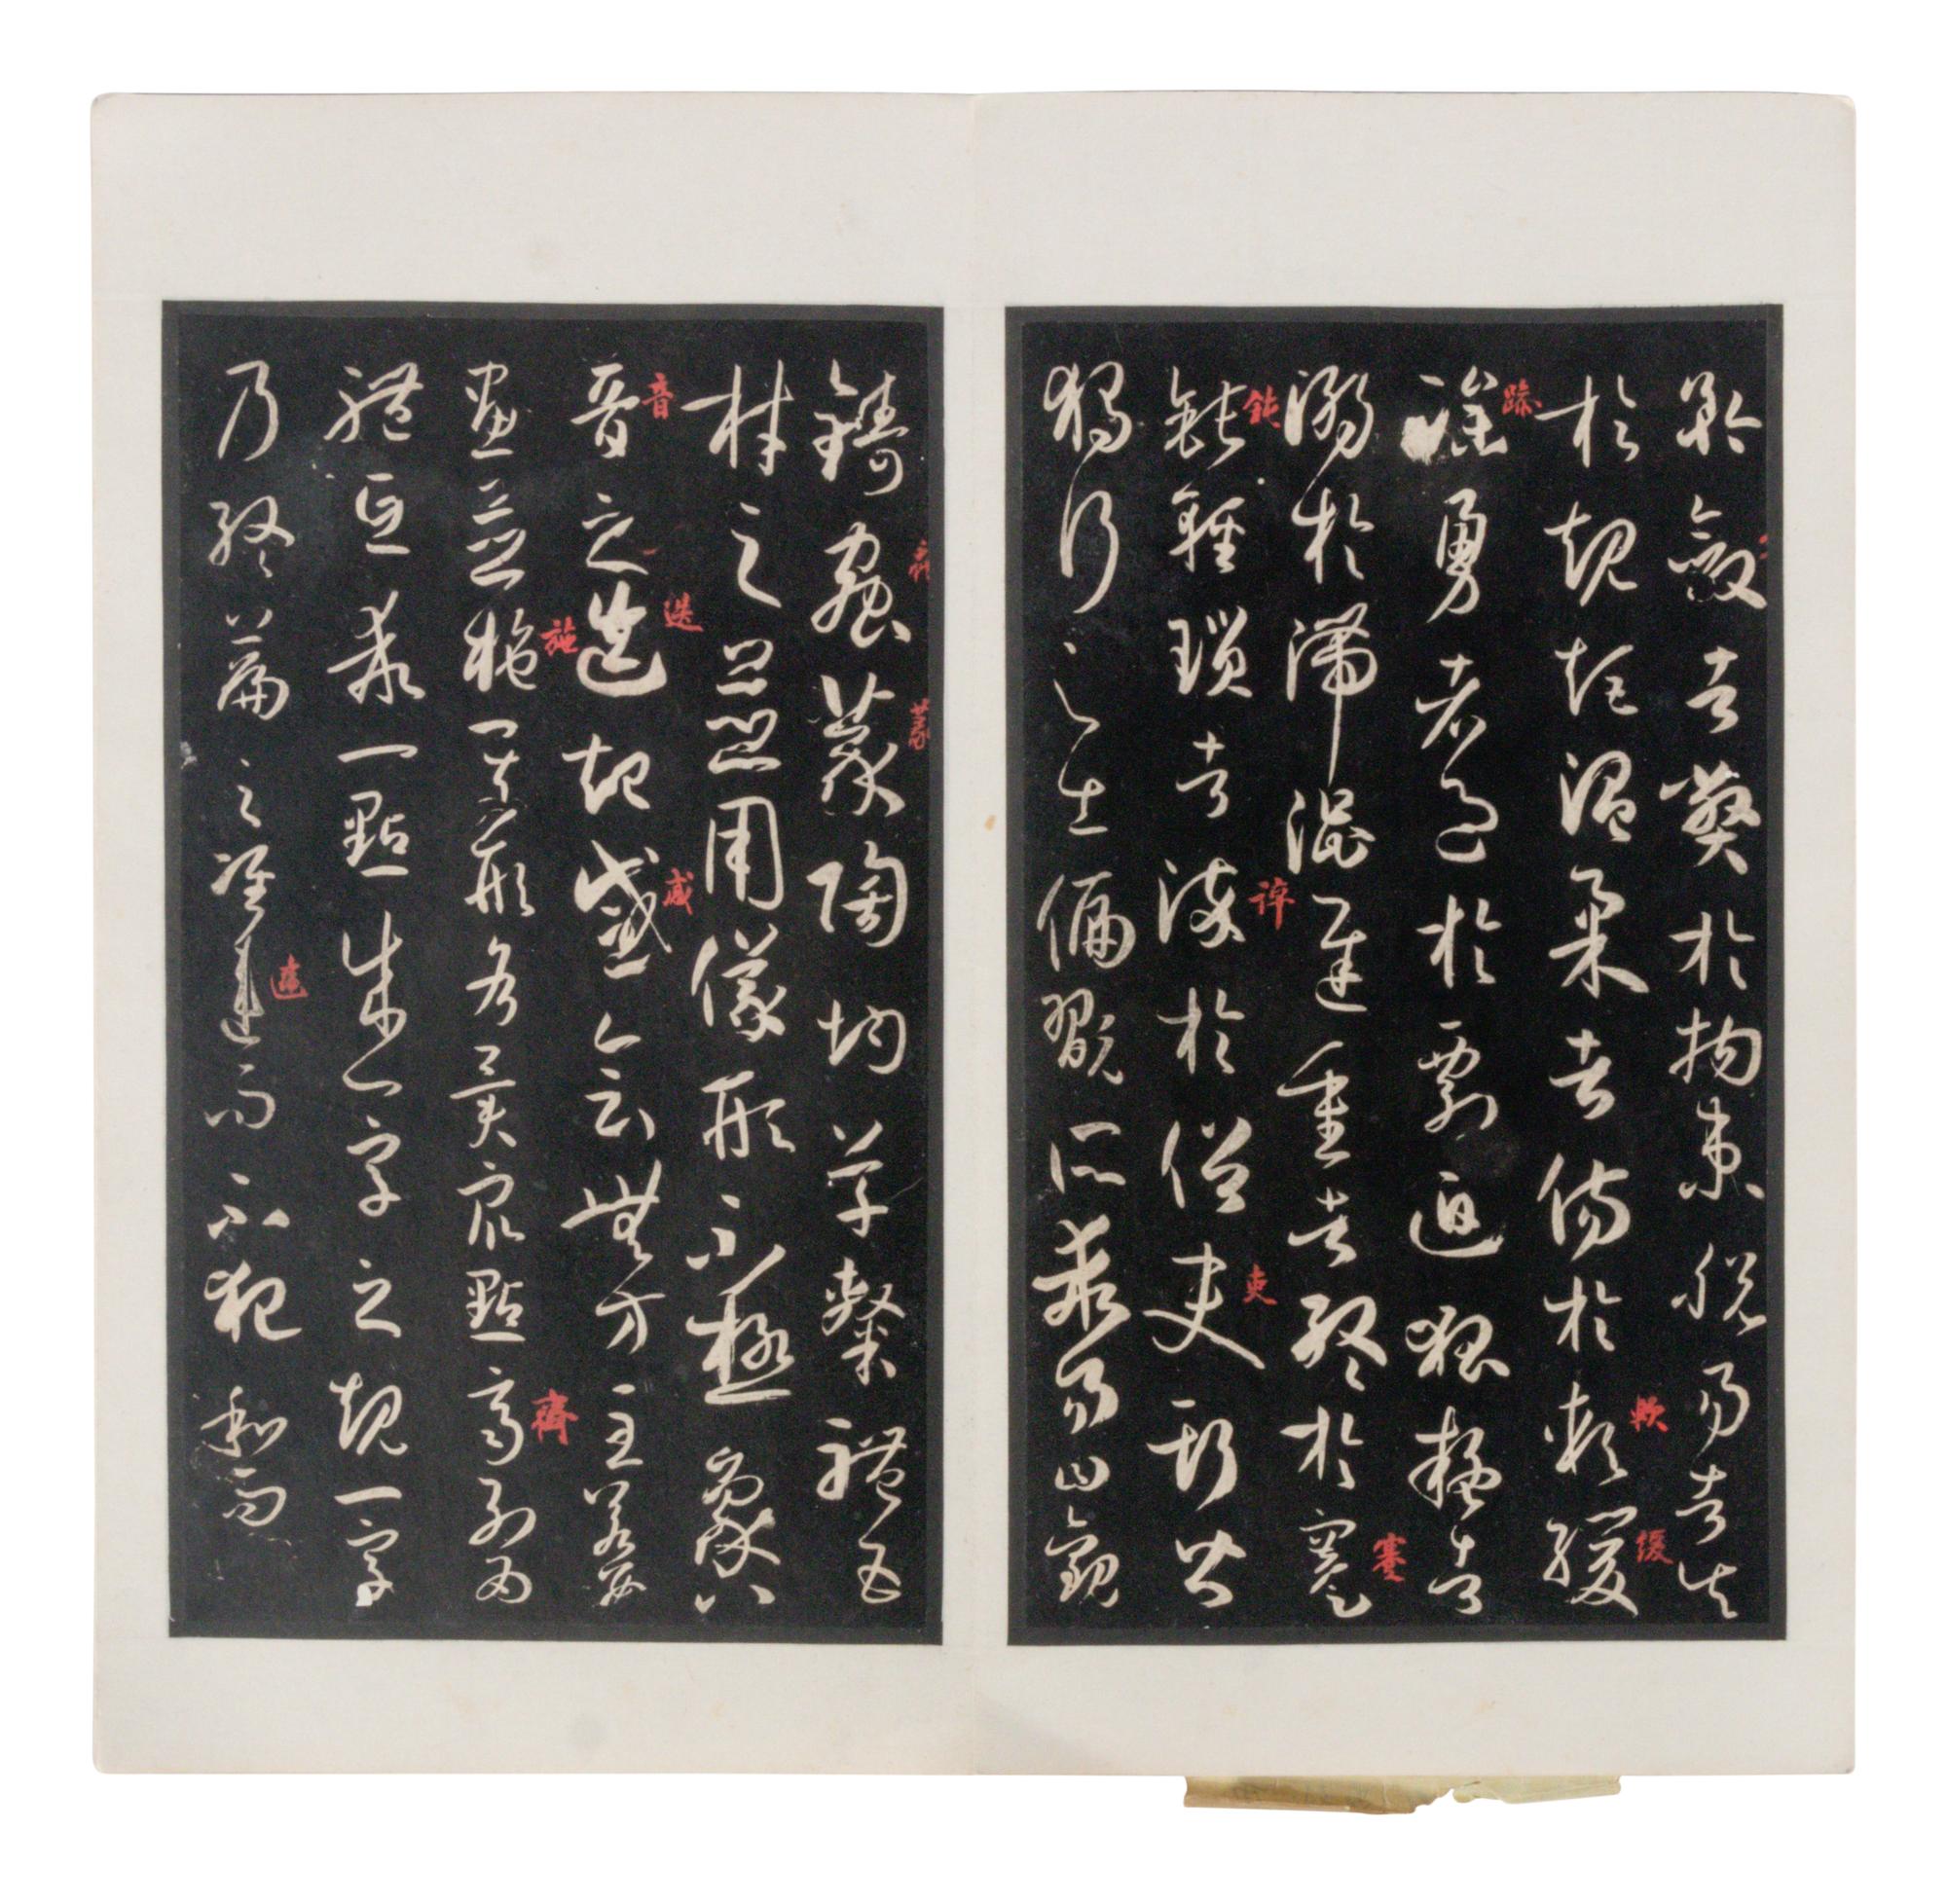 矜斂者弊於拘束脫易者失
於規矩溫柔者傷於軟緩
軟
緩
躁勇者過於剽迫狐疑者
躁
溺於滯澀遲重者終於蹇
蹇
鈍輕瑣者淬於俗吏斯皆
鈍
淬
吏
獨行之士偏翫所乖易曰觀
鑄蟲篆陶均草隸體五
篆
材之並用儀形不極象八
音之迭起感會無方至若數
音
迭
感
畫並施其形各異衆點齊列為
施
齊
體互乖一點成一字之規一字
乃終篇之准違而不犯和而
違